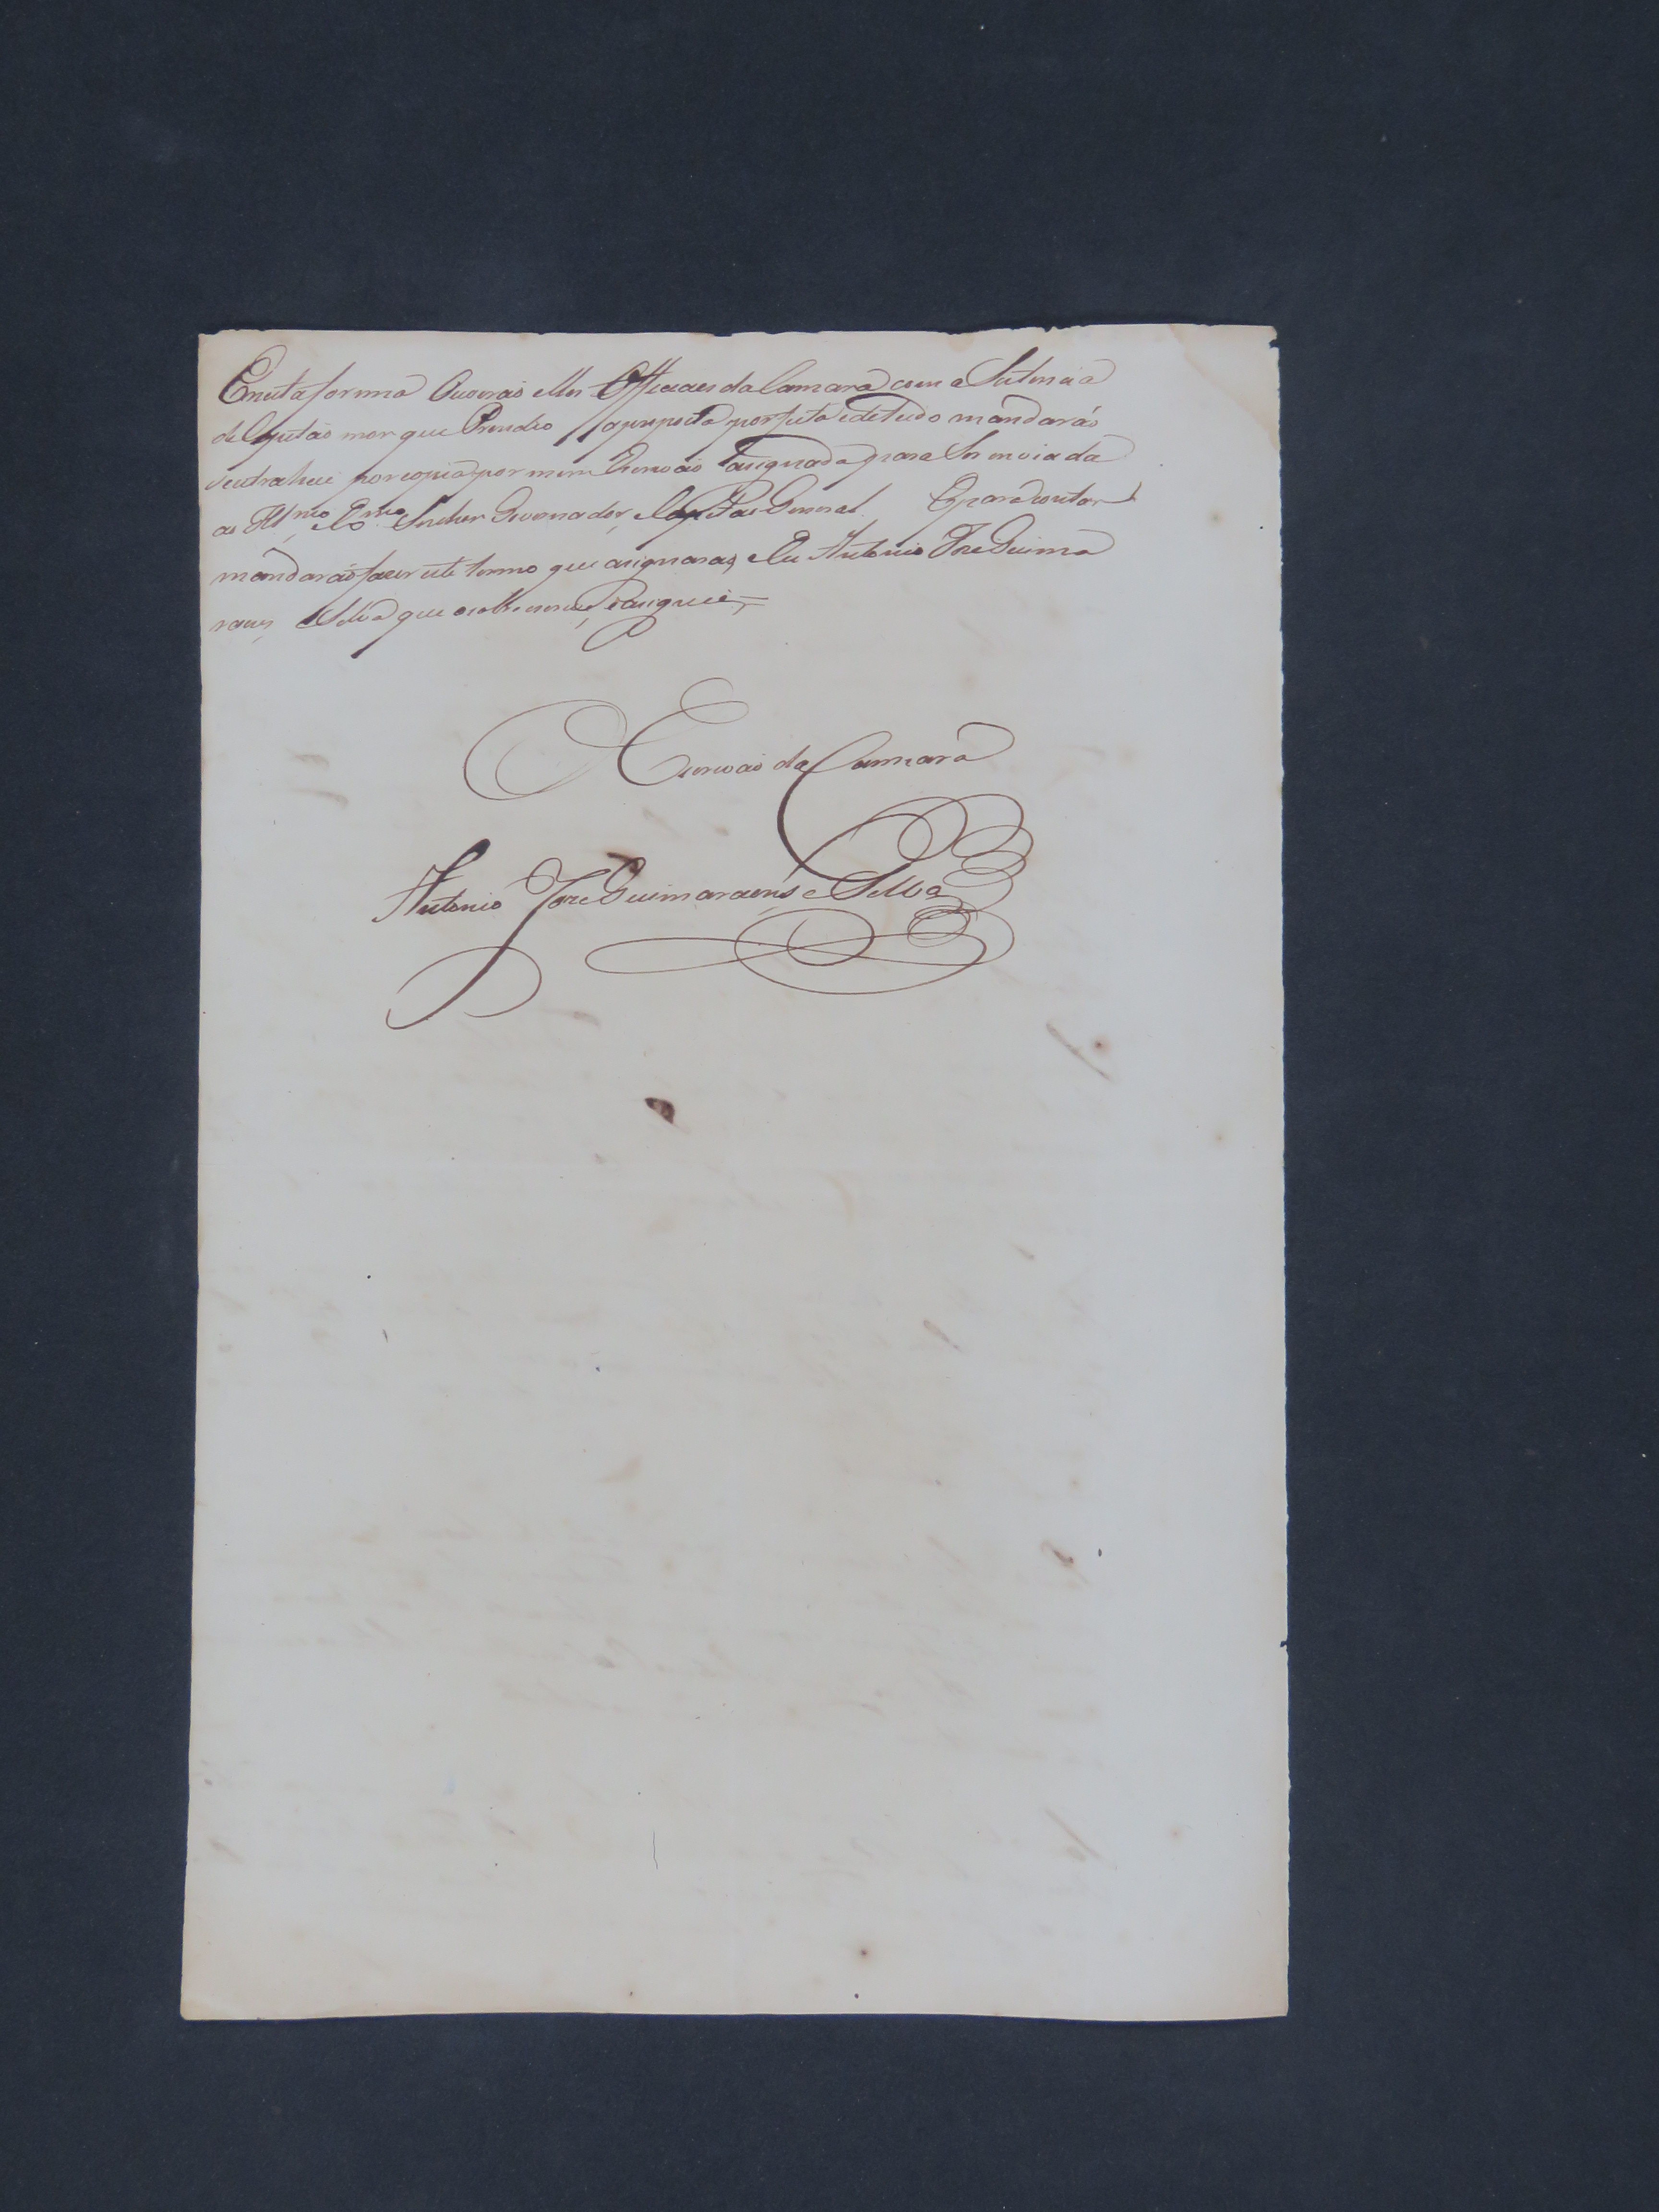 E nesta forma ouverão elles Officiaes da Camara com a Sistencia
do Capitão mor que Prezedio a proposta por feita e de tudo mandarão
se extrahice por copia por mim Escrivão asignada para Ser inviada
ao Ill.mo e Ex.mo Senhor Governador, e Capitão General. E para constar
mandarão fazer este termo que asignarão, e Eu Antonio Joze Guima
raes, e Silva que o sobescrevi, e asignei,
Escrivão da Camara
Antonio Joze Guimaraens e Silva